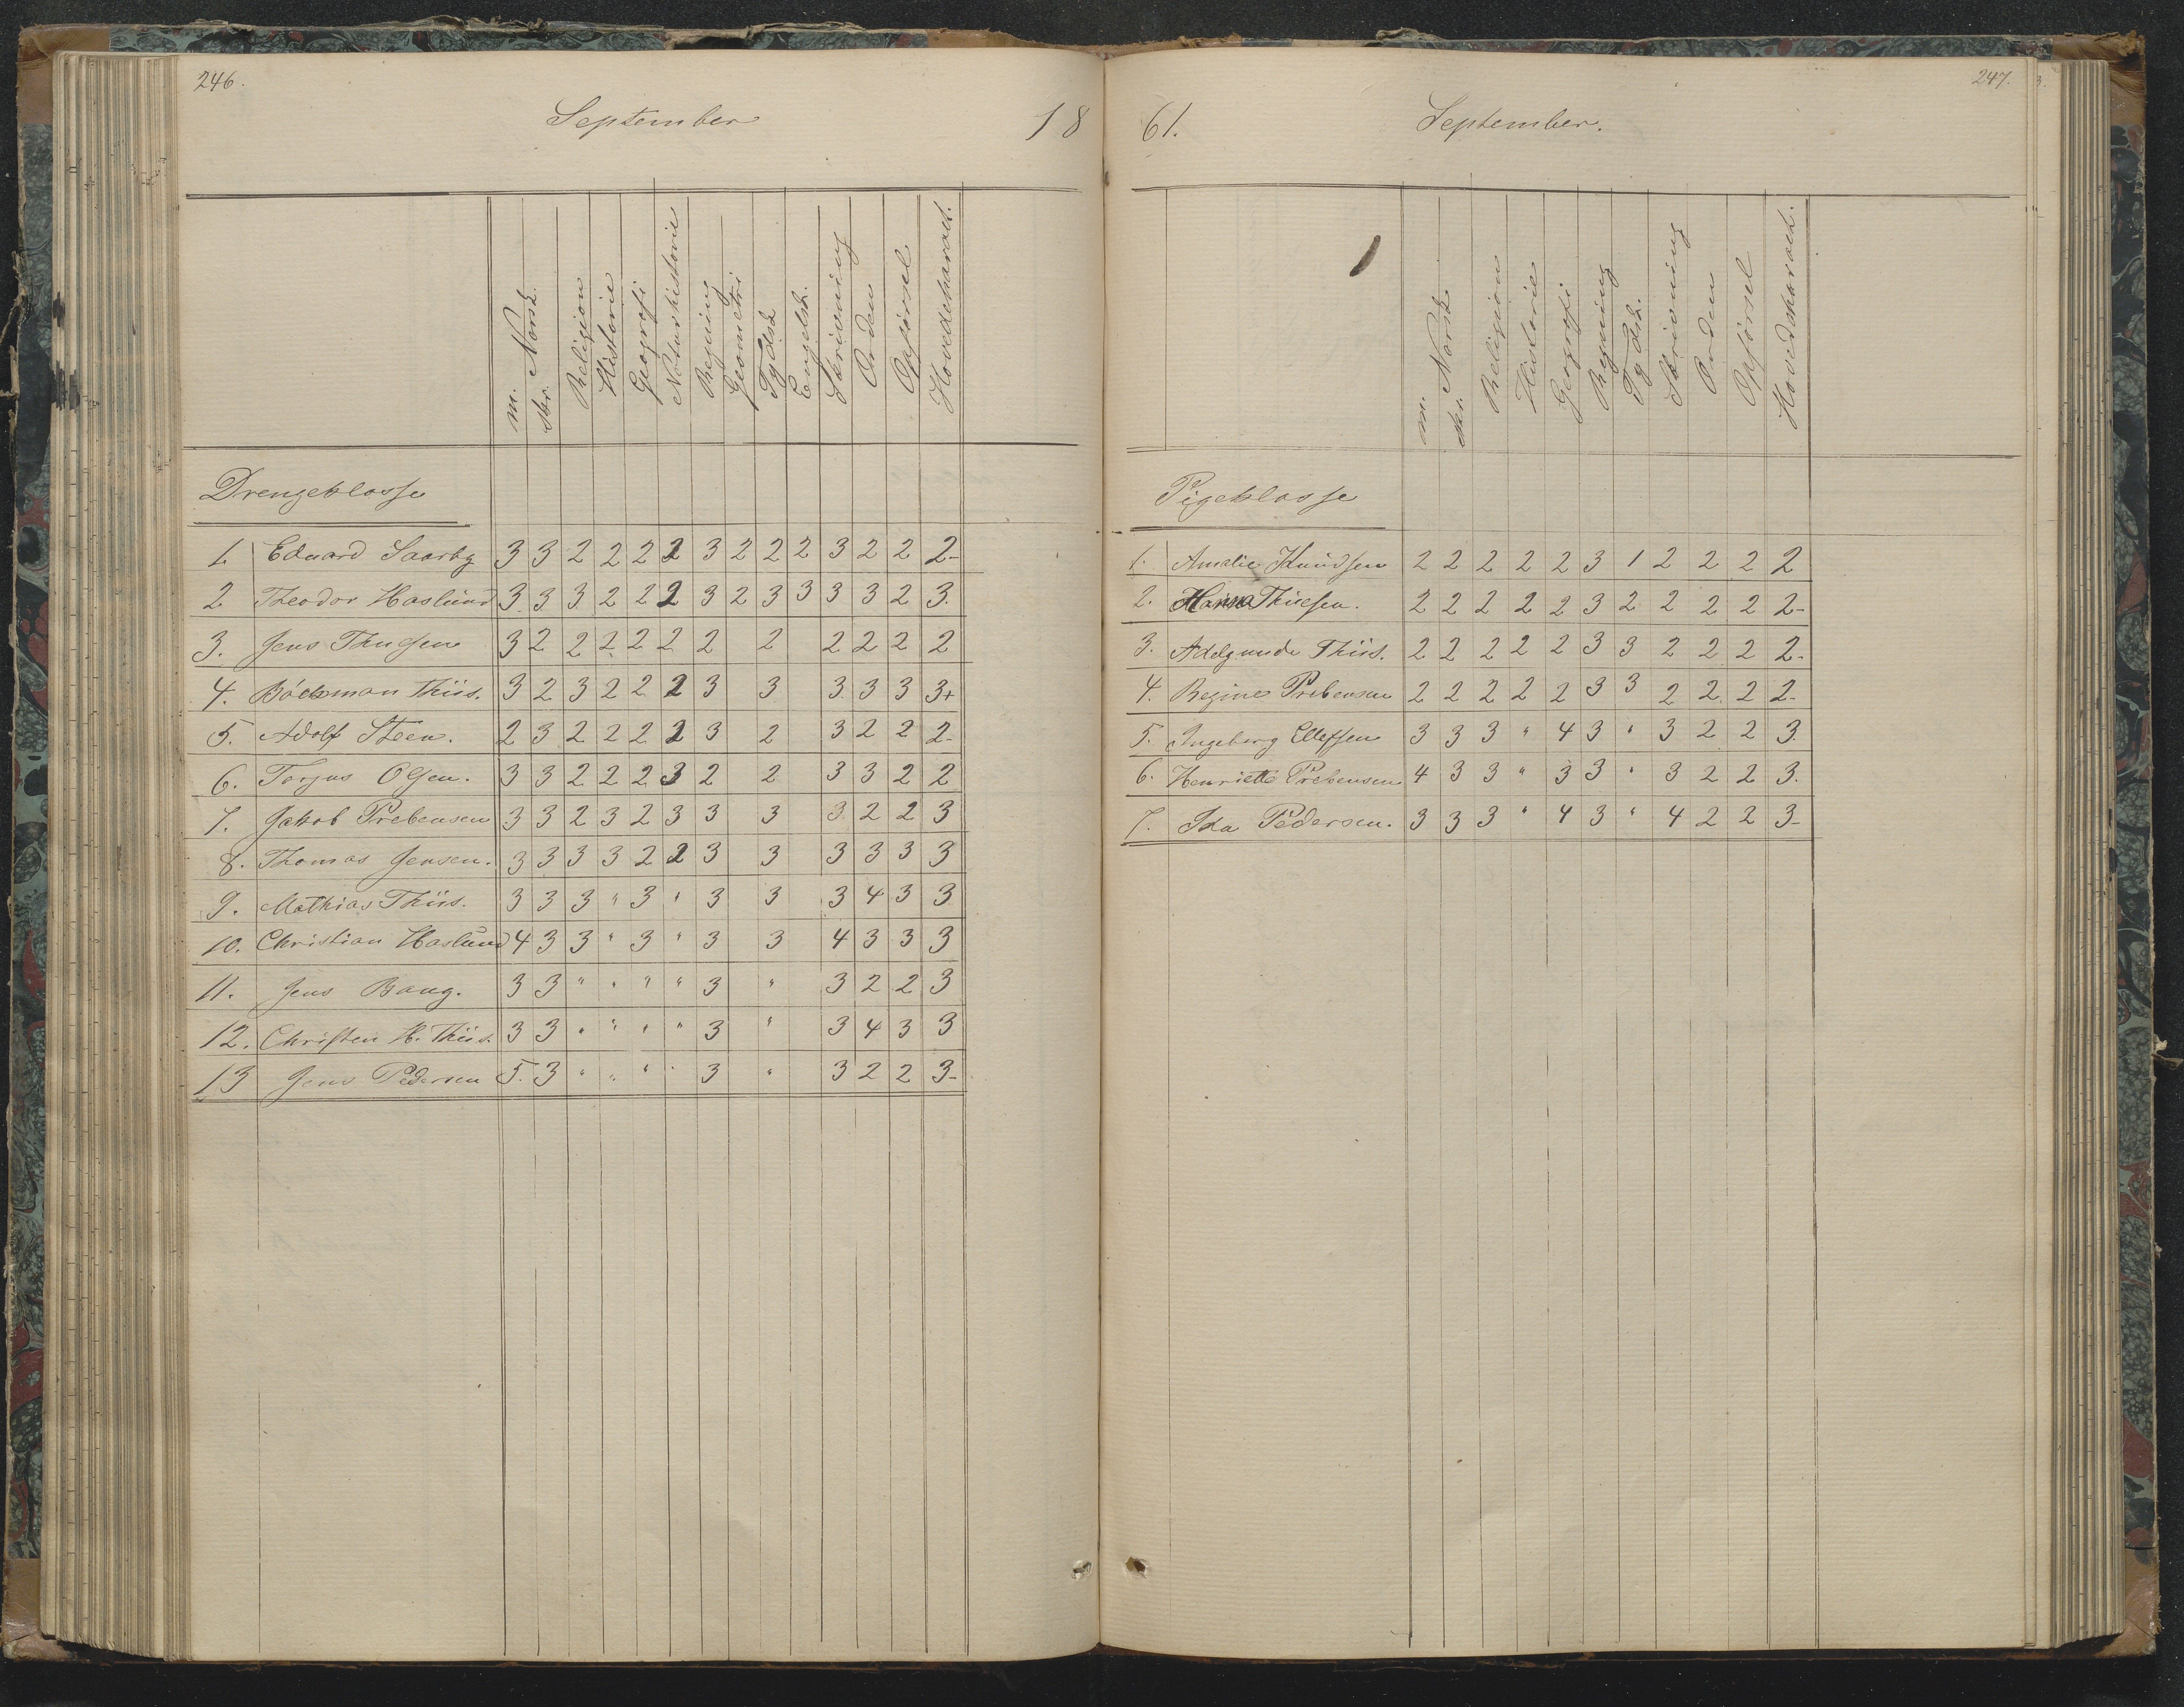 246.
September 18
m. Norsk. skr. Religion Historie Geografi Naturhistorie Regning Geometri Tydsk Engelsk. Skrivning Orden Opførsel Hovedcharact.
Drengeklasse
1. Eduard Saarby 3 3 2 2 2 2 3 2 2 2 3 2 2 2-
2 Theodor Haslund 3 3 3 2 2 2 3 2 3 3 3 3 2 3.
3. Jens Thuesen 3 2 2 2 2 2 2 2 2 2 2 2
4. Böckman Thiis. 3 2 3 2 2 2 3 3 3 3 3 3+
5. Adolf Steen. 2 3 2 2 2 2 3 2 3 2 2 2-
6. Torjus Olsen. 3 3 2 2 2 3 2 2 3 3 2 2
7. Jakob Prebensen 3 3 2 3 2 3 3 3 3 2 2 3
8. Thomas Jensen. 3 3 3 3 2 2 3 3 3 3 3 3
9. Mathias Thiis. 3 3 3 " 3 " 3 3 3 4 3 3
10. Christian Haslund 4 3 3 " 3 " 3 3 4 3 3 3
11. Jens Bang. 3 3 " " " " 3 " 3 2 2 3
12. Christen H. Thiis. 3 3 " " " " 3 " 3 4 3 3
13 Jens Pedersen 5. 3 " " " " 3 " 3 2 2 3-
247.
61. September.
m. Norsk skr. Religion Historie Geografi Regning Tydsk. Skrivning Orden Opførsel Hovedcharact.
Pigeklasse
1. Amalie Knudsen 2 2 2 2 2 3 1 2 2 2 2
2. Hansa Thuesen. 2 2 2 2 2 3 2 2 2 2 2-
3. Adelgunde Thiis. 2 2 2 2 2 3 3 2 2 2 2-
4. Regine Prebensen 2 2 2 2 2 3 3 2 2 2 2-
5. Ingeborg Ellefsen 3 3 3 " 4 3 " 3 2 2 3.
6. Henriette Prebensen 4 3 3 " 3 3 " 3 2 2 3.
7. Ida Pedersen. 3 3 3 " 4 3 " 4 2 2 3-